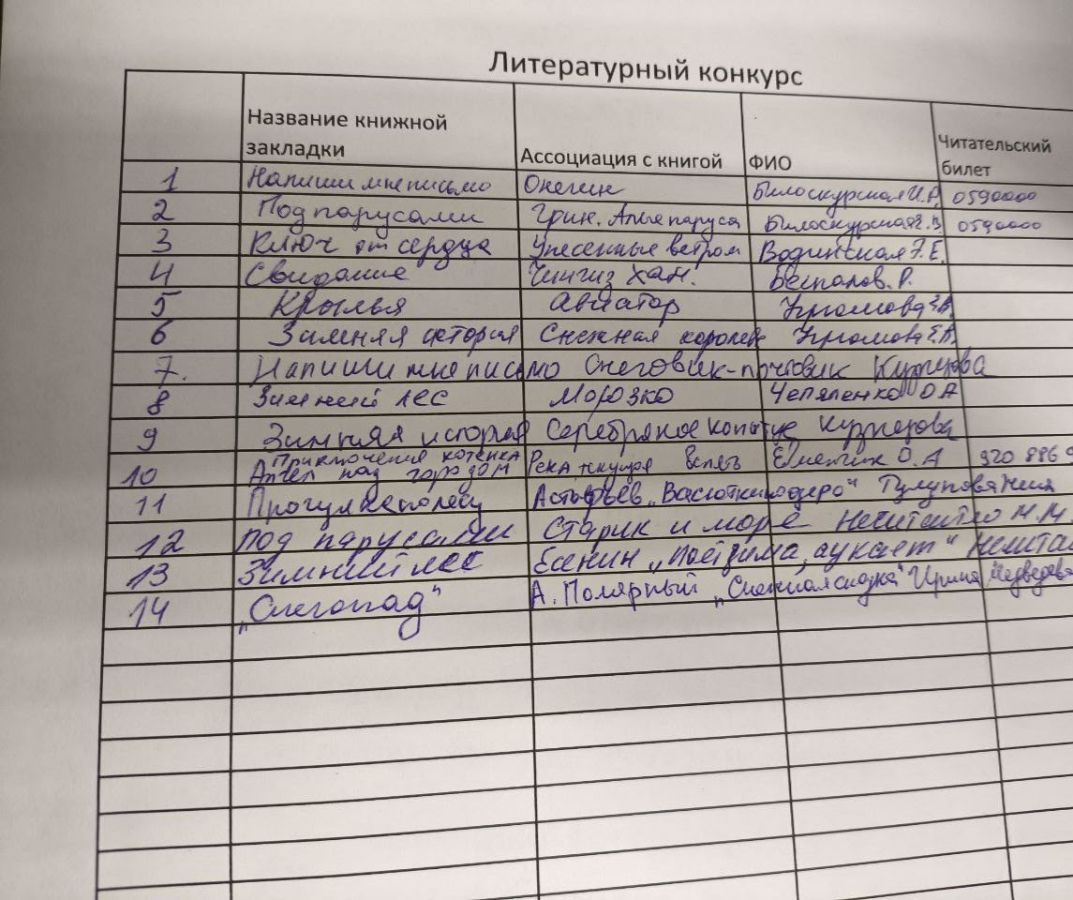 Литературный конкурс
Название книжной закладки Ассоциация с книгой ФИО Читательский билет
1 Напиши мне письмо Онегин Билоскурская И.Р. 0590000
2 Под парусами Грин. Алые паруса Билоскурская 0590000
3 Ключ от сердца Унесенные ветром Водинская Е.
4 Свидание Чингиз Хан. Беспалов. Р.
5 Крылья Авиатор
6 Зимняя история Снежная королев
7. Напиши мне письмо Снеговик-почтовик
8 Зимний лес Морозко Чепаленко О А
9 Зимняя история Серебряное копытце
10 Приключения котенка
Ангел над городом Река текущая вспять О.А 920 886
11 Прогулке по лесу Астафьев "Васюткино озеро" Тулупова
12 под парусами Старик и море М.М.
13 Зимний лес Есенин "Поёт зима, аукает"
14 "Снегопад" А. Полярный "Снежная сказка" Ирина Медведева